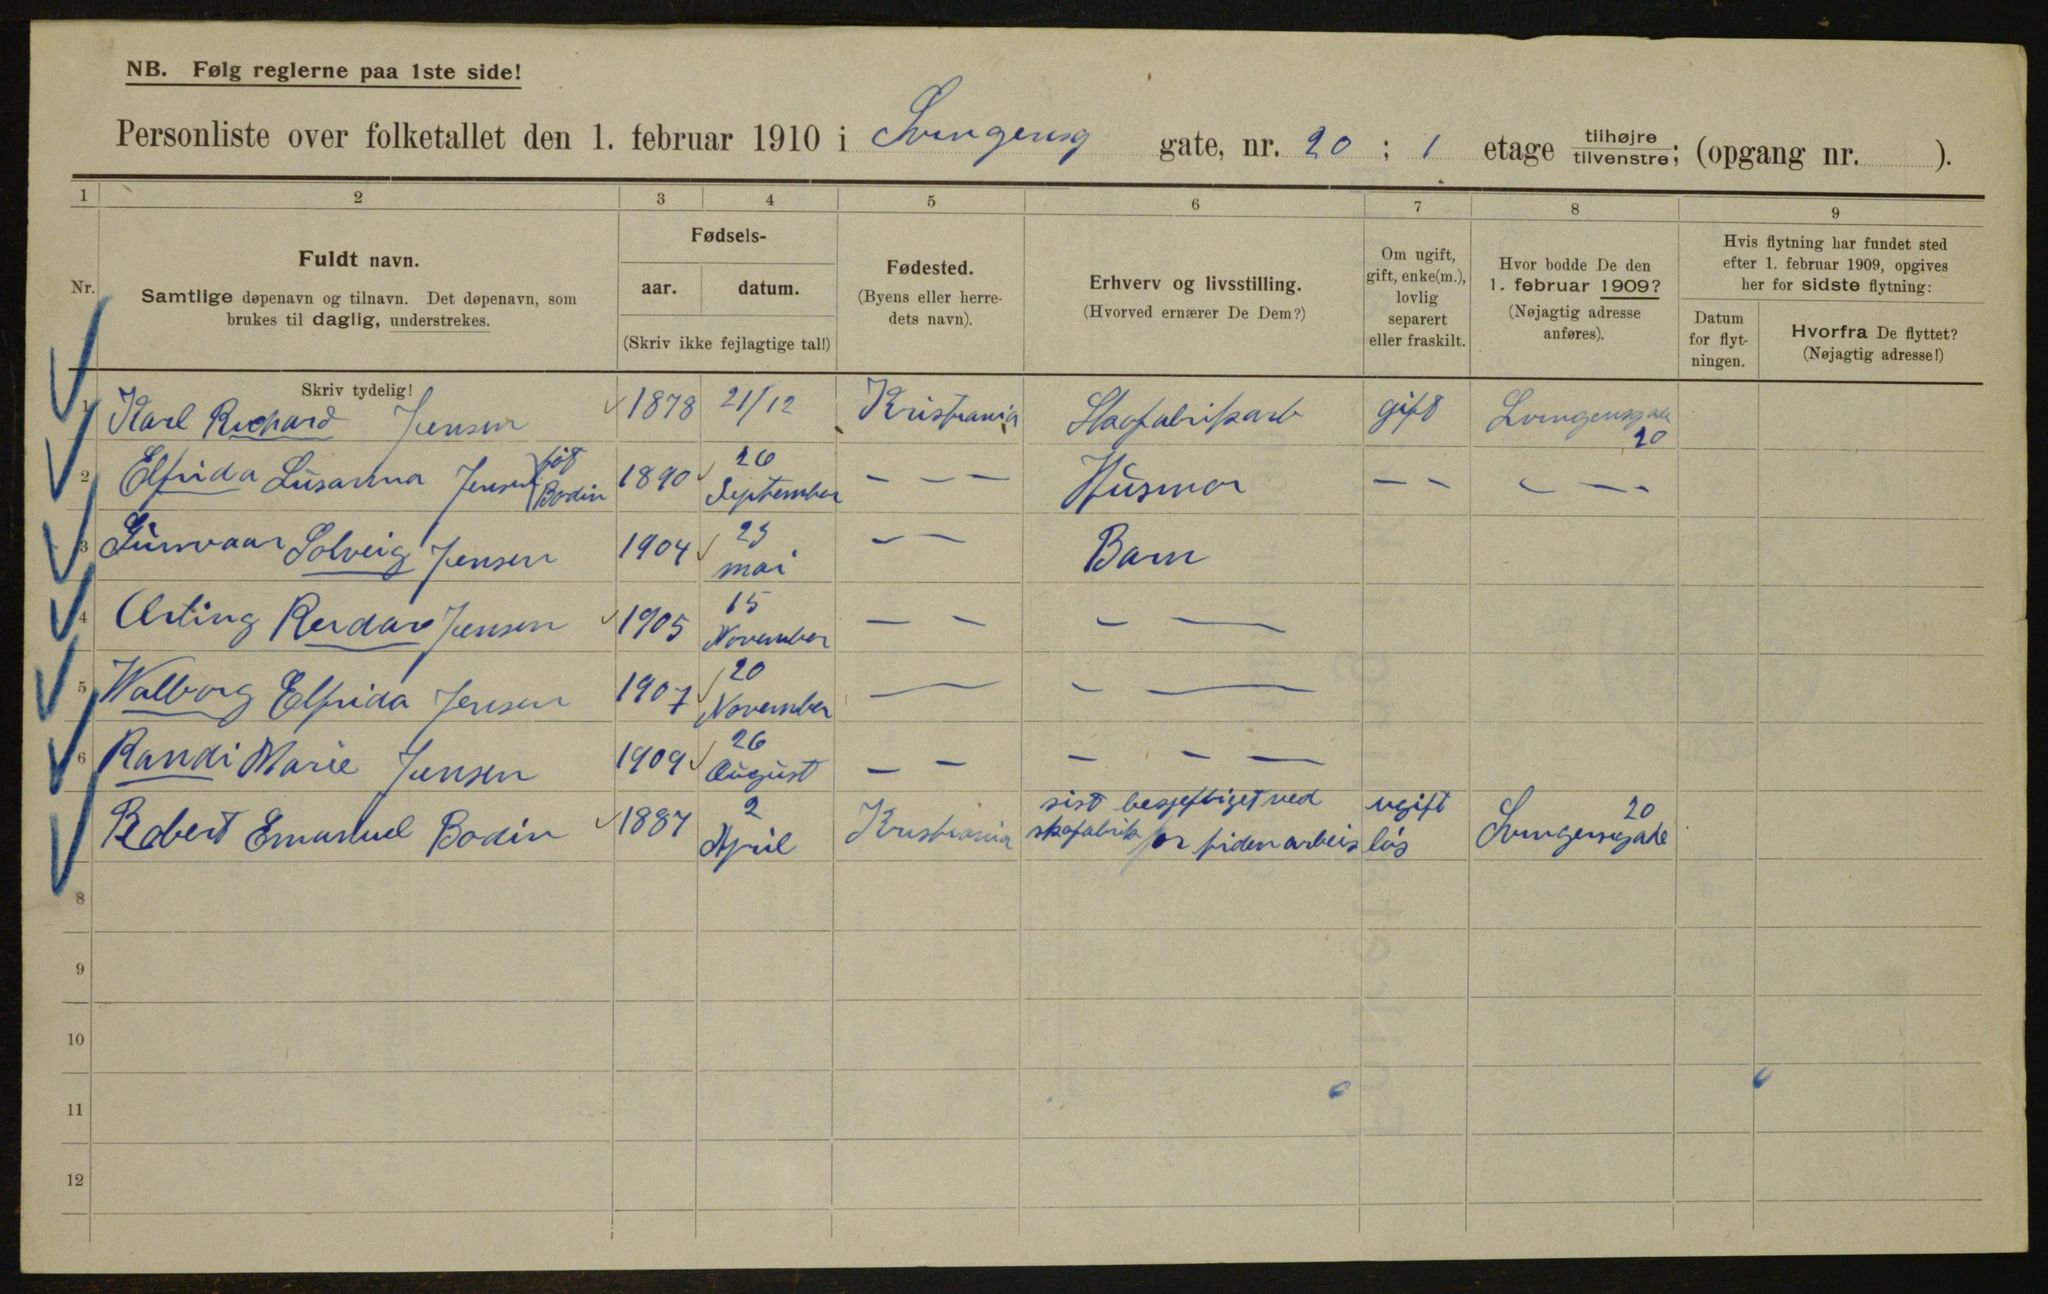 NB. Følg reglerne paa 1ste side!
Personliste over folketallet den 1. februar 1910 i Svingensg gate, nr. 20 ; 1 etage tilhøjre tilvenstre; (opgang nr. ).
1 2 3 4 5 6 7 8 9
Nr.
Fuldt navn.
Samtlige døpenavn og tilnavn. Det døpenavn, som
brukes til daglig, understrekes.
Skriv tydelig!
Fødsels-
aar. datum.
(Skriv ikke fejlagtige tal!)
Fødested.
(Byens eller herre-
dets navn).
Erhverv og livsstilling.
(Hvorved ernærer De Dem?)
Om ugift,
gift, enke(m.),
lovlig
separert
eller fraskilt.
Hvor bodde De den
1. februar 1909?
(Nøjagtig adresse
anføres).
Hvis flytning har fundet sted
efter 1. februar 1909, opgives
her for sidste flytning:
Datum
for flyt-
ningen.
Hvorfra De flyttet?
(Nøjagtig adresse!)
1 Karl Richard Jensen 1878 21/12 Kristiania Skofabrikarb gift Svingensgade 20
2 Elfrida Susanna Jensen föt Bodin 1890 26 September — — — Húsmor — — — — —
3 Gúnvaar Solveig Jensen 1904 23 mai — — Barn
4 Erling Reidar Jensen 1905 15 November — — — —
5 Walborg Elfrida Jensen 1907 20 November — — —
6 Randi Marie Jensen 1909 26 August — — — — —
Robert Emanuel Bodin 1887 2 April Kristiania sist besjeftiget ved ugift Svingensgade 20
skofabrik for tiden arbeislös
8
9
10
11
12